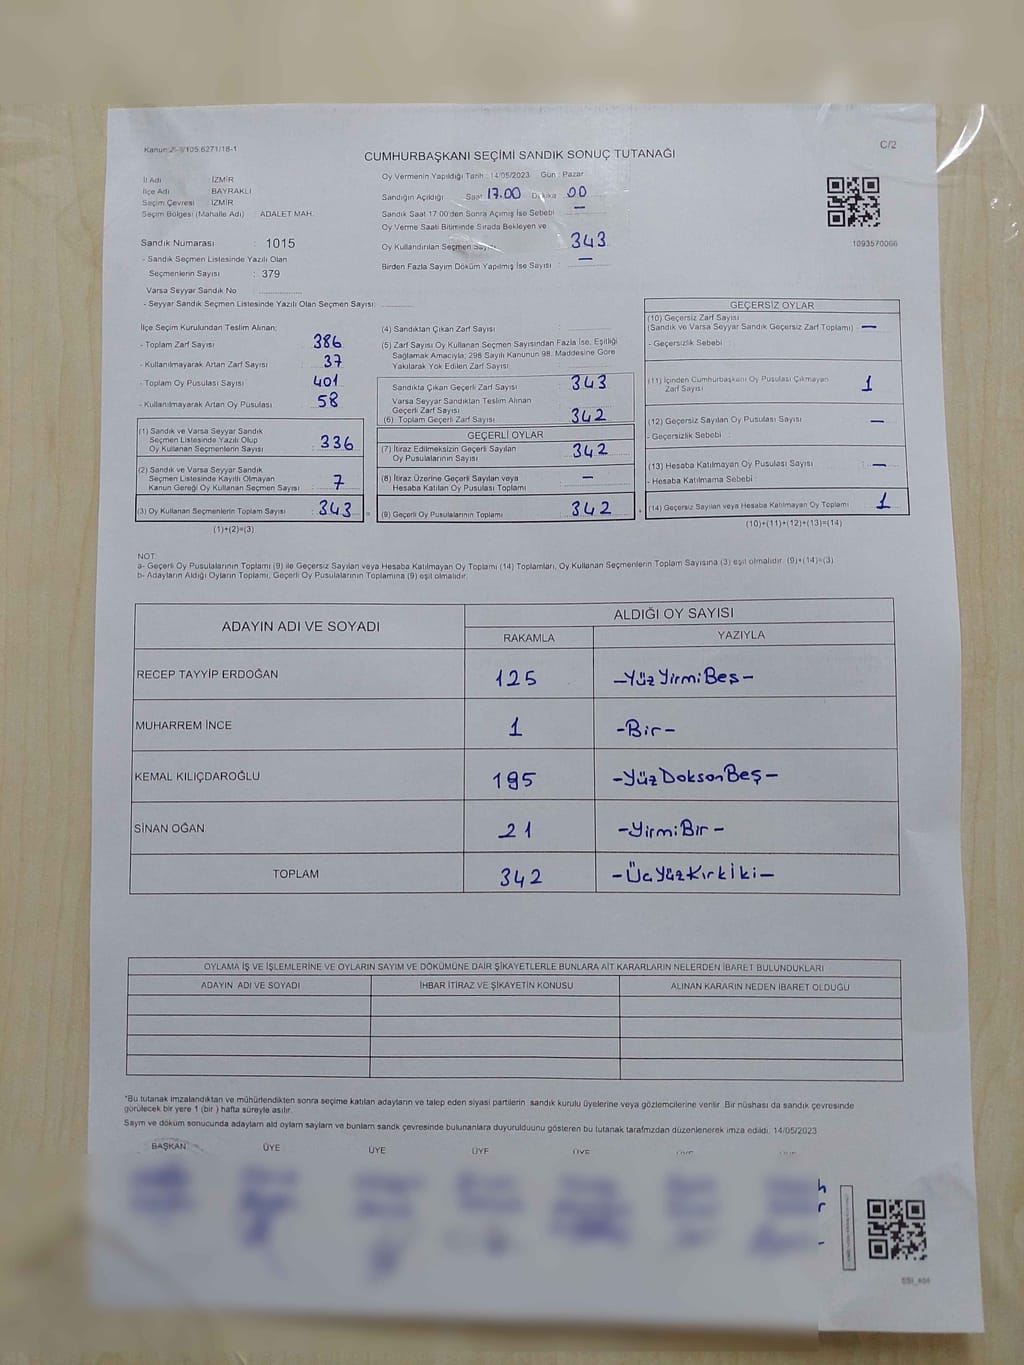 CUMHURBAŞKANI SEÇİMİ SANDIK SONUÇ TUTANAĞI
C/2
İl Adı : İZMİR
İlçe Adı : BAYRAKLI
Seçim Çevresi : İZMİR
Seçim Bölgesi (Mahalle Adı) : ADALET MAH.
Sandık Numarası : 1015
- Sandık Seçmen Listesinde Yazılı Olan
Seçmenlerin Sayısı : 379
Varsa Seyyar Sandık No :
- Seyyar Sandık Seçmen Listesinde Yazılı Olan Seçmen Sayısı:
Oy Vermenin Yapıldığı Tarih : 14/05/2023 Gün : Pazar
Sandığın Açıldığı Saat 17.00 Dakika 00
Sandık Saat 17.00'den Sonra Açımış İse Sebebi : —
Oy Verme Saati Bitiminde Sırada Bekleyen ve
Oy Kullandırılan Seçmen Sayısı : 343
Birden Fazla Sayım Döküm Yapılmış İse Sayısı : —
1093570066
İlçe Seçim Kurulundan Teslim Alınan;
- Toplam Zarf Sayısı : 386
- Kullanılmayarak Artan Zarf Sayısı : 37
- Toplam Oy Pusulası Sayısı : 401
- Kullanılmayarak Artan Oy Pusulası : 58
(1) Sandık ve Varsa Seyyar Sandık
Seçmen Listesinde Yazılı Olup
Oy Kullanan Seçmenlerin Sayısı : 336
(2) Sandık ve Varsa Seyyar Sandık
Seçmen Listesinde Kayıtlı Olmayan
Kanun Gereği Oy Kullanan Seçmen Sayısı : 7
(3) Oy Kullanan Seçmenlerin Toplam Sayısı : 343
(1)+(2)=(3)
(4) Sandıktan Çıkan Zarf Sayısı :
(5) Zarf Sayısı Oy Kullanan Seçmen Sayısından Fazla İse, Eşitliği
Sağlamak Amacıyla; 298 Sayılı Kanunun 98. Maddesine Göre
Yakılarak Yok Edilen Zarf Sayısı :
Sandıkta Çıkan Geçerli Zarf Sayısı : 343
Varsa Seyyar Sandıktan Teslim Alınan
Geçerli Zarf Sayısı :
(6) Toplam Geçerli Zarf Sayısı : 342
GEÇERLİ OYLAR
(7) İtiraz Edilmeksizin Geçerli Sayılan
Oy Pusulalarının Sayısı : 342
(8) İtiraz Üzerine Geçerli Sayılan veya
Hesaba Katılan Oy Pusulası Toplamı : —
(9) Geçerli Oy Pusulalarının Toplamı : 342
GEÇERSİZ OYLAR
(10) Geçersiz Zarf Sayısı
(Sandık ve Varsa Seyyar Sandık Geçersiz Zarf Toplamı) : —
- Geçersizlik Sebebi :
(11) İçinden Cumhurbaşkanı Oy Pusulası Çıkmayan
Zarf Sayısı : 1
(12) Geçersiz Sayılan Oy Pusulası Sayısı : —
- Geçersizlik Sebebi :
(13) Hesaba Katılmayan Oy Pusulası Sayısı : —
- Hesaba Katılmama Sebebi :
(14) Geçersiz Sayılan veya Hesaba Katılmayan Oy Toplamı : 1
(10)+(11)+(12)+(13)=(14)
NOT:
a- Geçerli Oy Pusulalarının Toplamı (9) ile Geçersiz Sayılan veya Hesaba Katılmayan Oy Toplamı (14) Toplamları, Oy Kullanan Seçmenlerin Toplam Sayısına (3) eşit olmalıdır. (9)+(14)=(3)
b- Adayların Aldığı Oyların Toplamı, Geçerli Oy Pusulalarının Toplamına (9) eşit olmalıdır.
ADAYIN ADI VE SOYADI
ALDIĞI OY SAYISI
RAKAMLA YAZIYLA
RECEP TAYYİP ERDOĞAN 125 -Yüz Yirmi Beş-
MUHARREM İNCE 1 -Bir-
KEMAL KILIÇDAROĞLU 195 -Yüz Dokson Beş-
SİNAN OĞAN 21 -Yirmi Bir-
TOPLAM 342 -Üc Yüz Kırk İki-
OYLAMA İŞ VE İŞLEMLERİNE VE OYLARIN SAYIM VE DÖKÜMÜNE DAİR ŞİKAYETLERLE BUNLARA AİT KARARLARIN NELERDEN İBARET BULUNDUKLARI
ADAYIN ADI VE SOYADI İHBAR İTİRAZ VE ŞİKAYETİN KONUSU ALINAN KARARIN NEDEN İBARET OLDUĞU
*Bu tutanak imzalandıktan ve mühürlendikten sonra seçime katılan adayların ve talep eden siyasi partilerin sandık kurulu üyelerine veya gözlemcilerine verilir. Bir nüshası da sandık çevresinde
görülecek bir yere 1 (bir ) hafta süreyle asılır.
Sayım ve döküm sonucunda adayların ald oyların sayların ve bunların sandk çevresinde bulunanlara duyurulduunu gösteren bu tutanak tarafmzdan düzenlenerek imza edildi. 14/05/2023
BAŞKAN ÜYE ÜYE ÜYE ÜYE